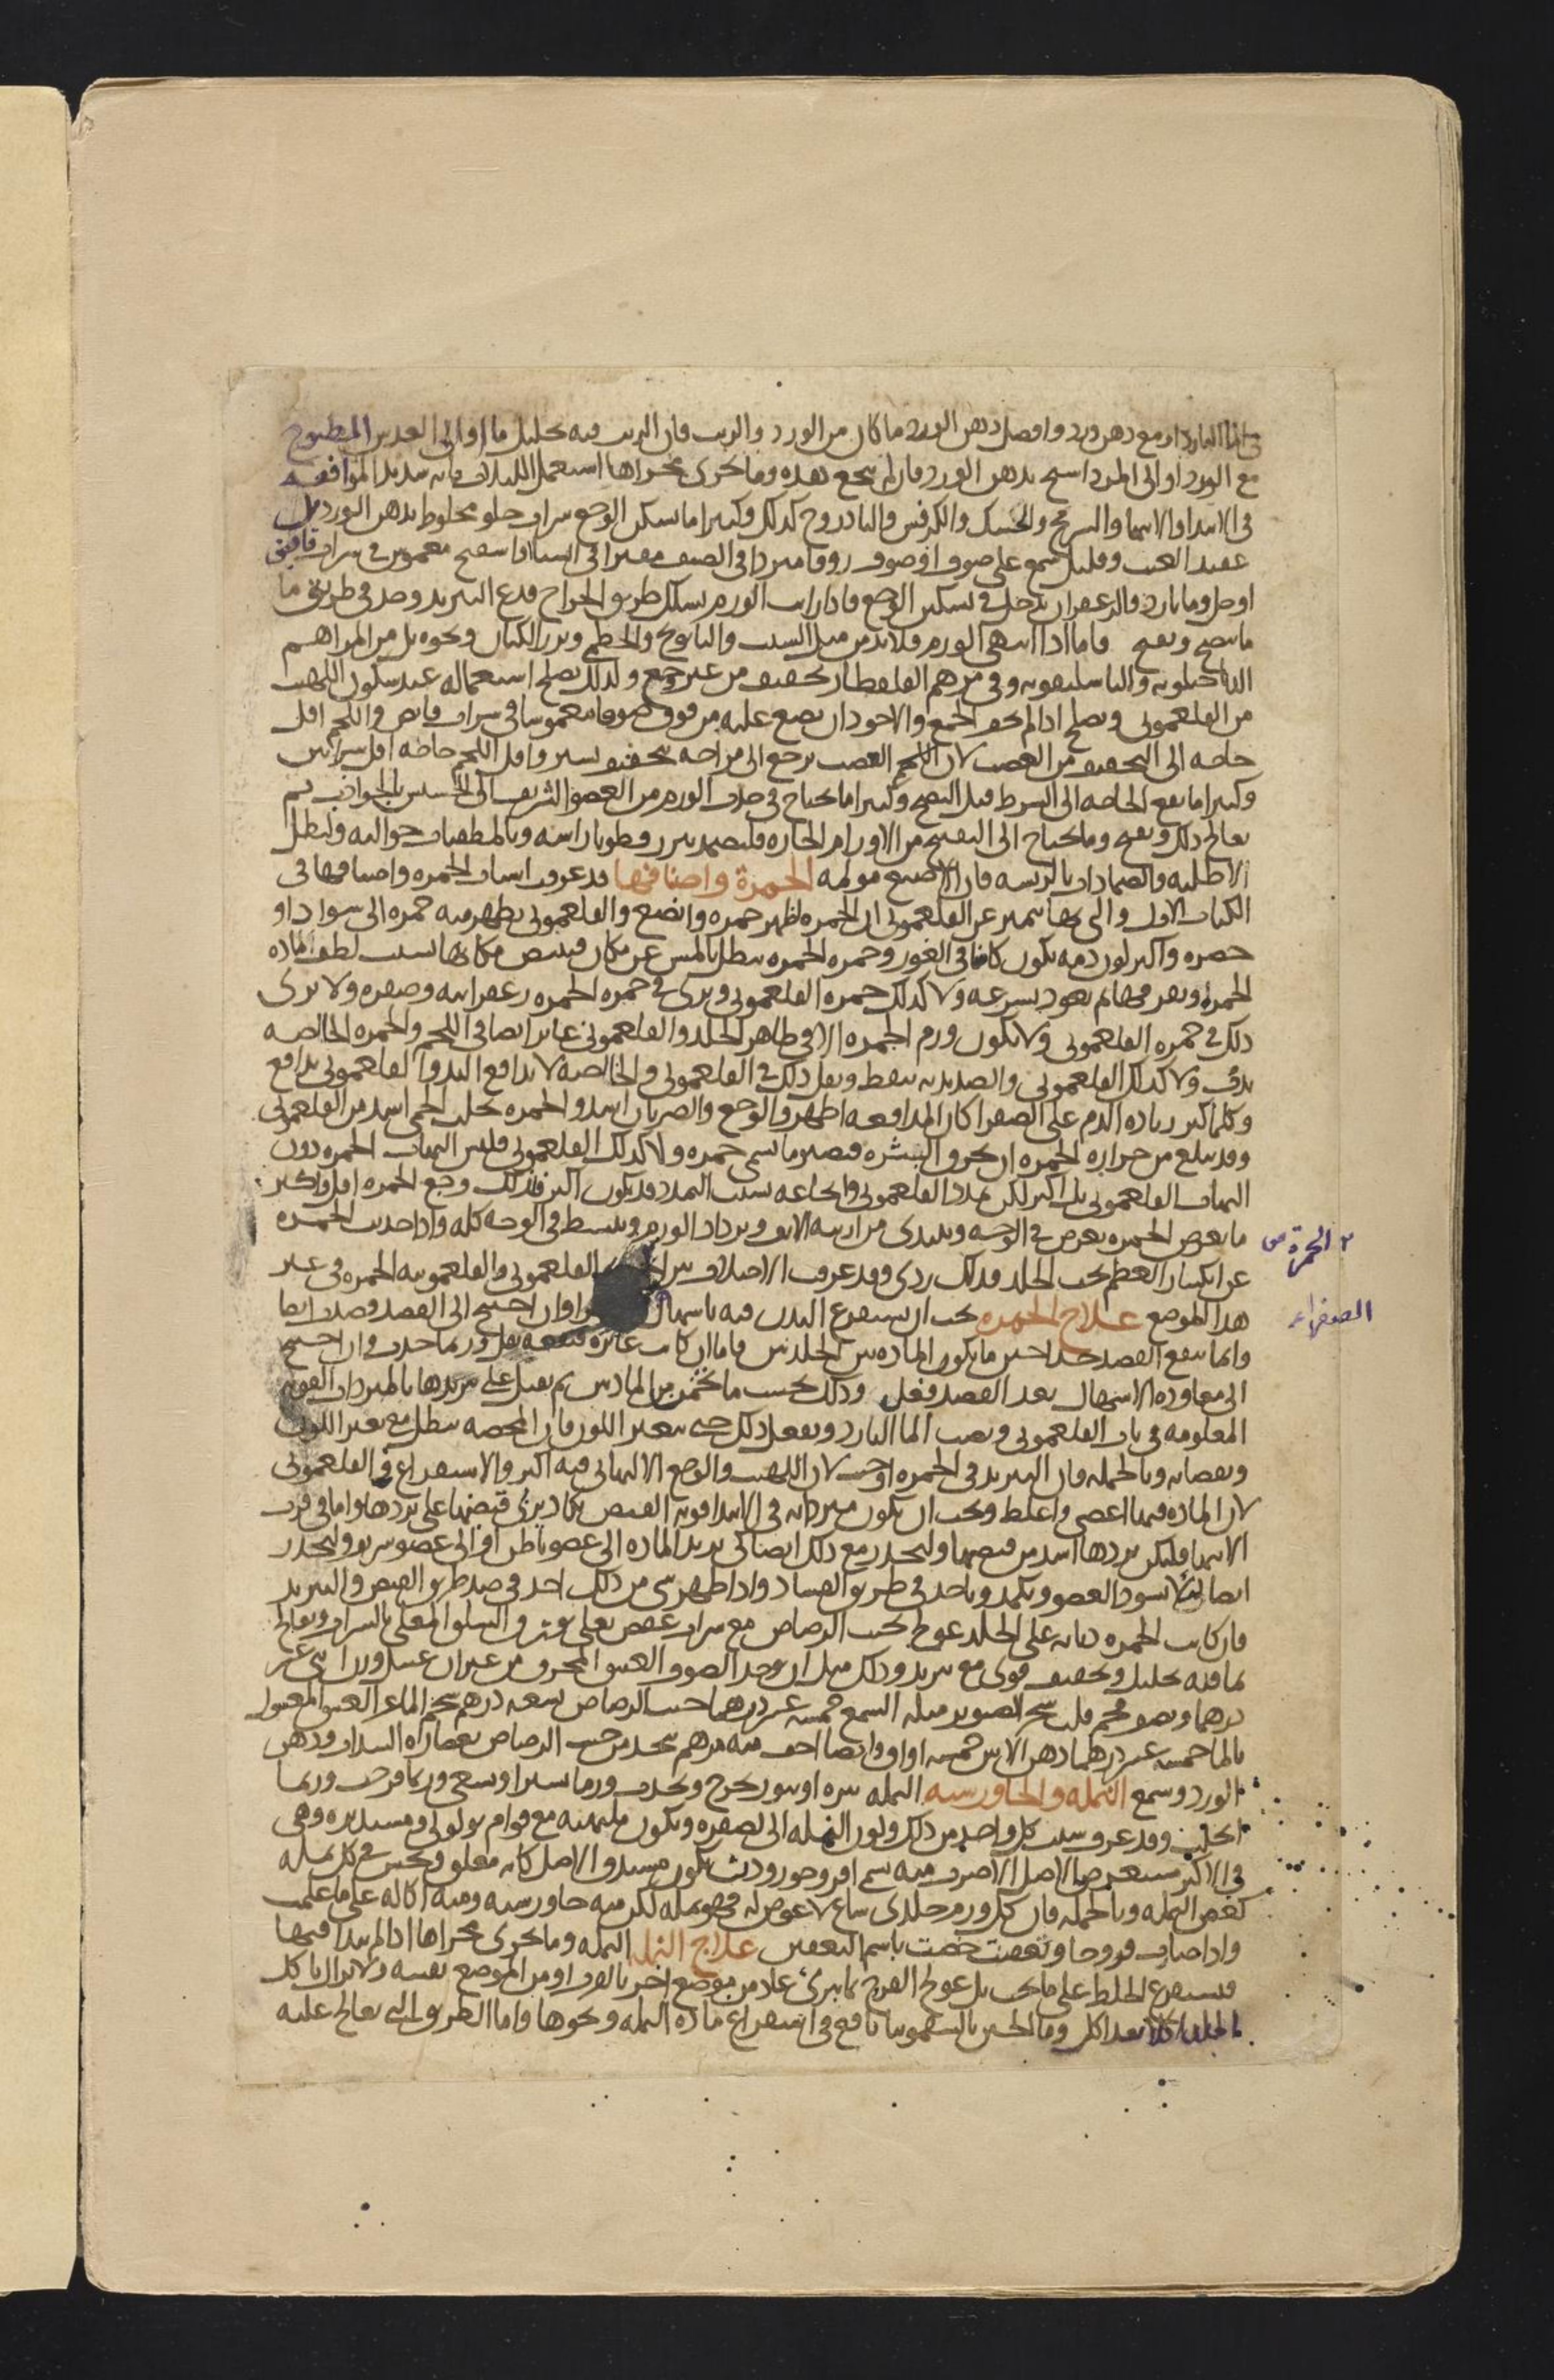 في الماء البارد او مع دهن ورد وافضل دهن الورد ما كان من الورد والزيت فان الزيت فيه تحليل ما او الى العدس المطبوخ
مع الورد او الى المرداسنج بدهن الورد فان لم ينجع هذه وما يجري مجراها استعمل اللبلاب فانه شديد الموافقه
في الابتدا والانتها والسرمج والحسك والكرفس والبادروج كذلك وكثيرا ما يسكن الوجع شراب حلو مخلوط بدهن الورد بل
عقيد العنب وقليل شمع على صوف او صوف زوفا مبردا في الصيف مفترا في الشتا او اسفنج مغموس في شراب قابض
او خل وما بارد والزعفران يدخل في تسكين الوجع فاذا رايت الورم يسلك طريق الخراج فدع التبريد وخذ في طريق ما
ما ينضج ويفتح فاما اذا انتهى الورم فلا بد من مثل الشبت والبابونج والخطمي وبزر الكتان ونحوه بل من المراهم
الداخيلونيه والباسليقونيه وفي مرهم القلقطار تجفيف من غير وجع ولذلك يصلح استعماله عند سكون اللهيب
من الفلغموني ويصلح اذا لم يخف الجمع والاجود ان يضع عليه من فوق صوفا مغموسا في شراب قابض واللحم اقل
حاجه الى التجفيف من العصب لان اللحم العصب يرجع الى مزاجه بتجفيف يسير واقل اللحم حاجه اقل شرايين
وكثيرا ما يقع الحاجه الى الشرط قبل النضج وكثيرا ما يحتاج في جذب الورم من العضو الشريف الى الخسيس بالجواذب ثم
يعالج ذلك ويقيح وما يحتاج الى التقييح من الاورام الحاره فليضمد ببزر قطونا راسه وبالمطفيات حواليه ولتطل
الاطليه والضمادات بالريشه فان الاصبع مولمه الحمرة واصنافها قد عرفت اسباب الحمره واصنافها في
الكتاب الاول والتي بها يتميز عن الفلغموني ان الحمره اظهر حمره وانصع والفلغموني يظهر فيه حمره الى سواد او
خضره واكثر لون دمه يكون كامنا في الغور وحمره الحمره تبطل بالمس عن مكان فيبيض مكانها بسبب لطف الماده
الحمره وتفرقها ثم يعود بسرعه ولا كذلك حمره الفلغموني ويرى في حمره الحمره زعفرانيه وصفره ولا يرى
ذلك في حمره الفلغموني ولا يكون ورم الحمره الا في ظاهر الجلد والفلغموني غائر ايضا في اللحم والحمره الخالصه
تدب ولا كذلك الفلغموني والصديديه تنفط ويقل ذلك في الفلغموني والخالصه لا تدافع اليد والفلغموني يدافع
وكلما كثر زياده الدم على الصفرا كان المدافعه اظهر والوجع والضربان اشد والحمره تجلب الحمى اشد من الفلغموني
وقد يبلغ من حراره الحمره ان يحرق البشره فيصير ما يسمى جمره ولا كذلك الفلغموني فليس التهاب الحمره دون
التهاب الفلغموني بل اكثر لكن تمدد الفلغموني وايجاعه بسبب التمدد قد يكون اكثر فلذلك وجع الحمره اقل واكثر
ما يعرض الحمره يعرض في الوجه ويبتدي من ارنبه الانف ويزداد الورم وينبسط في الوجه كله واذا حدثت الحمره
عن انكسار العظم تحت الجلد فذلك ردي وقد عرفت الاختلاف بين الفلغموني والفلغمونيه الحمره في غير
هذا الموضع علاج الحمره يجب ان يستفرغ البدن فيه باسهال وان احتيج الى الفصد فصدت ايضا
وانما ينفع الفصد جدا حين ما يكون الماده بين الجلدين فاما ان كانت غائره فنفعه يقل وربما جذب وان احتيج
الى معاوده الاسهال بعد الفصد فعل وذلك بحسب ما يخمن من المادتين ثم يقبل على تبريدها بالمبردات القويه
المعلومه في باب الفلغموني ويصب الماء البارد ويفعل ذلك حتى يتغير اللون فان المحضه تبطل مع تغير اللون
ونقصانه وبالجمله فان التبريد في الحمره اوجب لان اللهيب والوجع الالتهابي فيه اكثر والاستفراغ في الفلغموني
لان الماده فيها اعصى واغلظ ويجب ان يكون مبرداته في الابتدا قويه القبض يكاد يربى قبضها على بردها واما في قرب
الانتها فليكن بردها اشد من قبضها وليحذر مع ذلك ايضا كي يرتد الماده الى عضو باطن او الى عضو شريف وليحذر
ايضا ليلا يسود العضو ويكمد وياخذ في طريق الفساد واذا ظهر شي من ذلك اخذ في ضد طريق القبض والتبريد
فان كانت الحمره دبابه على الجلد عولج بخبث الرصاص مع شراب عفص يطلى بورق السلق المغلى بالشراب ويعالج
بما فيه تحليل وتجفيف قوي مع تبريد وذلك مثل ان يوخذ الصوف العتيق المحرق من غير ان غسل وزن اثني عشر
درهما ويضف فحم قلب شجر الصنوبر مثله الشمع خمسه عشر درهما خبث الرصاص تسعه دراهم شحم الماعز العتيق المغسول
بالماء خمسه عشر درهما دهن الاس خمسه اواق وايضا اخف منه مرهم يتخذ من خبث الرصاص بعصاره السداب ودهن
الورد وشمع النمله والجاورسيه النمله بثره او بثور يخرج ويحدث ورما يسيرا وتسعى وربما قرحت وربما
انحلت وقد عرفت سبب كل واحد من ذلك ولون النمله الى الصفره ويكون ملتهبه مع قوام ثولولي ومستديره وهي
في الاكثر مستعرض الاصل الا صرف منه يسمى افروخوردونيث يكون مستدق الاصل كانه معلق ويحس في كل نمله
كعض النمله وبالجمله فان كل ورم جلدي ساع لا عوض له فهو نمله لكن منه جاورسيه ومنه اكاله على ما علمت
واذا صارت قروحا وتعفنت خصت باسم التعفين علاج النمله النمله وما يجري مجراها اذا لم يبدا فيها
فيستفرغ الخلط على ما يجب بل عولج القرح بما يبري عاد من موضع اخر بالقرب او من الموضع نفسه ولا تزال ياكل
الجلد اكلا بعد اكل وماء الجبن بالسقمونيا نافع في استفراغ ماده النمله ونحوها واما الطريق التي يعالج عليه
الحمرة من
الصفراء